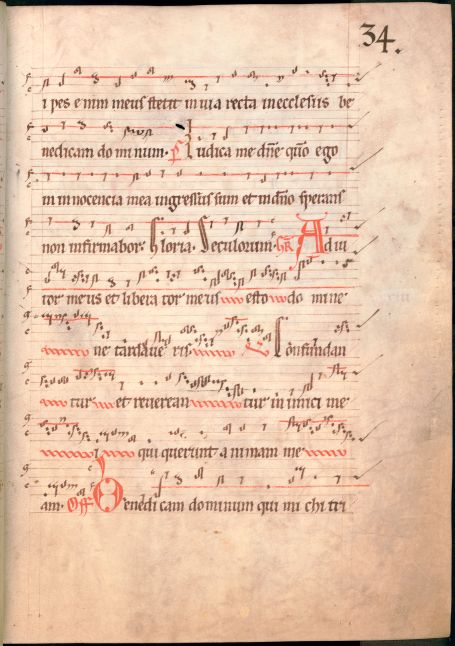 34.
i pes enim meus stetit in via recta in ecclesiis be
nedicam dominum. Iudica me dñe qm̄ ego
in innocencia mea ingressus sum et in dño sperans
non infirmabor. Gloria. Seculorum. GR Adiu
tor meus et liberator meus esto domine
ne tardaveris. Confundan
tur et reverean tur inimici me
i qui querunt animam me
am. Off Benedicam dominum qui michi tri